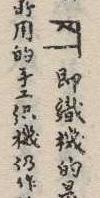 即織機的
所用的手工织機仍作